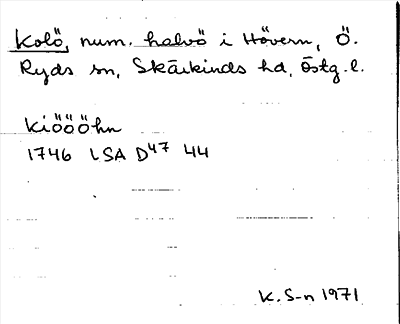 Kolö, num. halvö i Hövern, Ö.
Ryds sn, Skärkinds hd, Östg.l.
Kiöööhn
1746 LSA D47 44
K. S-n 1971